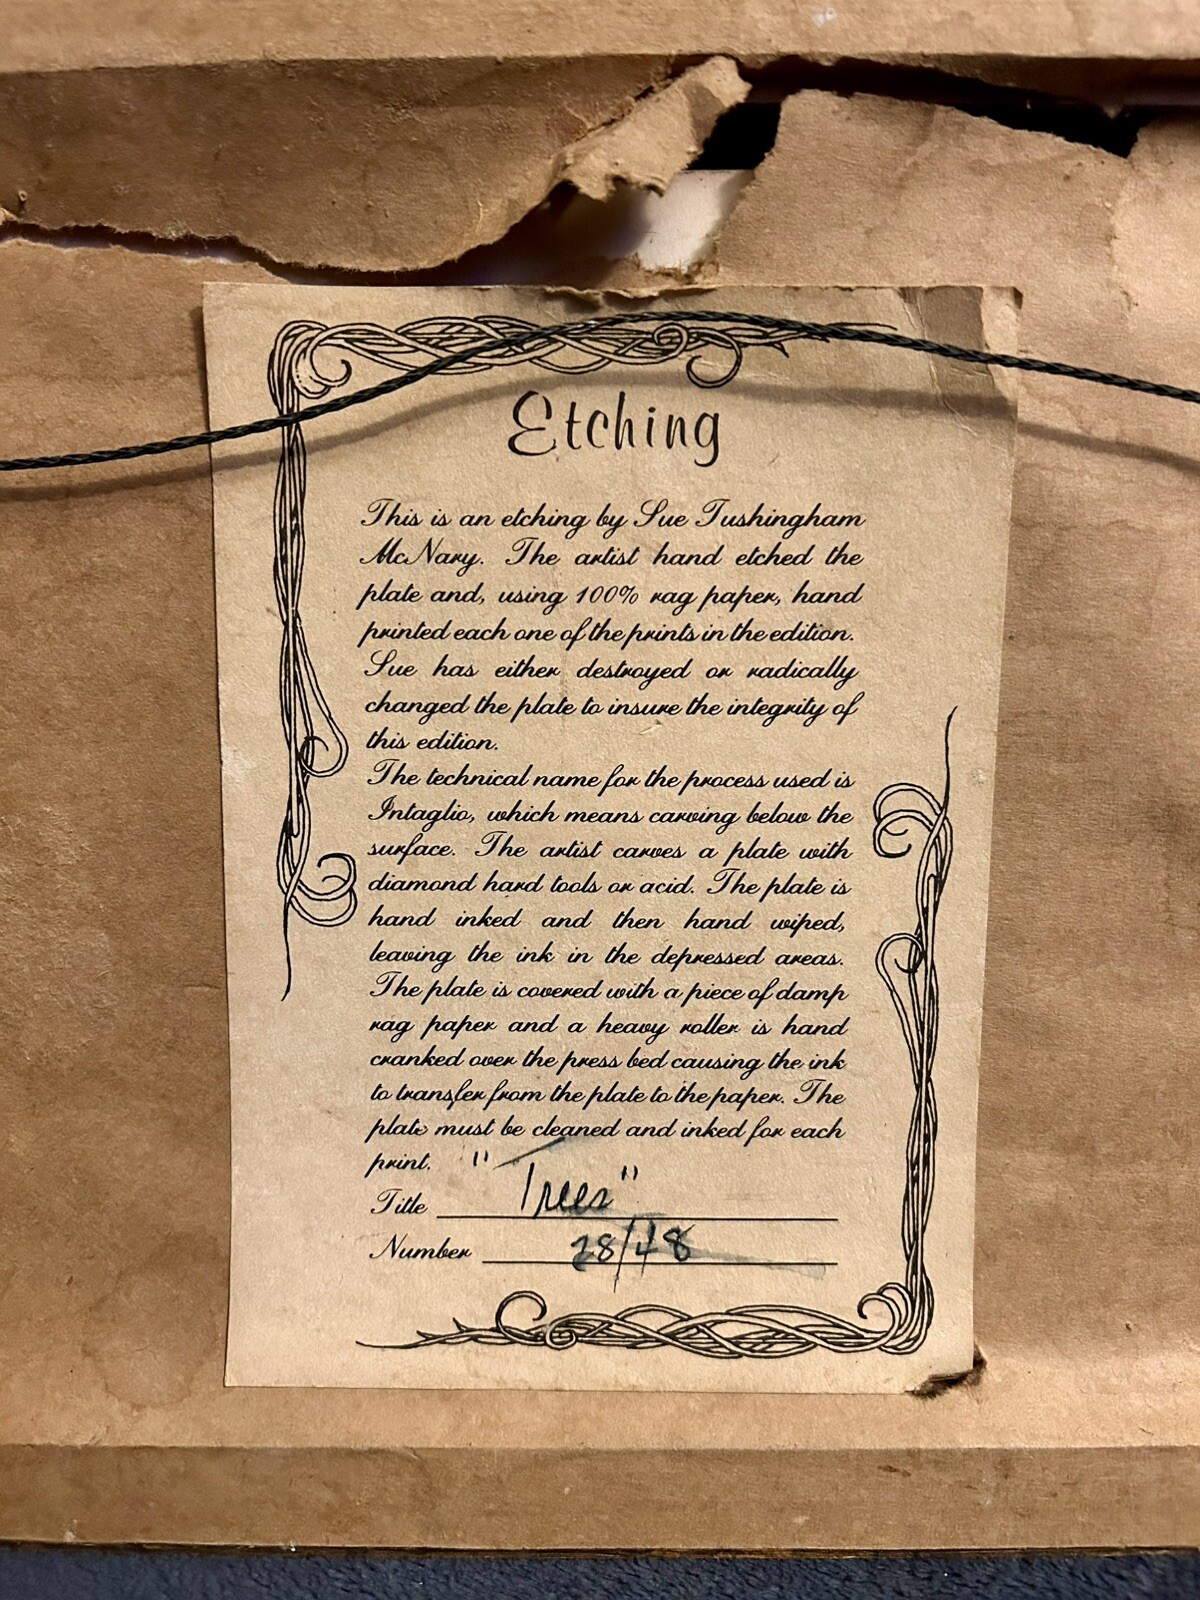 Etching
This is an etching by Sue Tushingham
McNary. The artist hand etched the
plate and, using 100% rag paper, hand
printed each one of the prints in the edition.
Sue has either destroyed or radically
changed the plate to insure the integrity of
this edition.
The technical name for the process used is
Intaglio, which means carving below the
surface. The artist carves a plate with
diamond hard tools or acid. The plate is
hand inked and then hand wiped,
leaving the ink in the depressed areas.
The plate is covered with a piece of damp
rag paper and a heavy roller is hand
cranked over the press bed causing the ink
to transfer from the plate to the paper. The
plate must be cleaned and inked for each
print.
Title "Trees"
Number 28/48